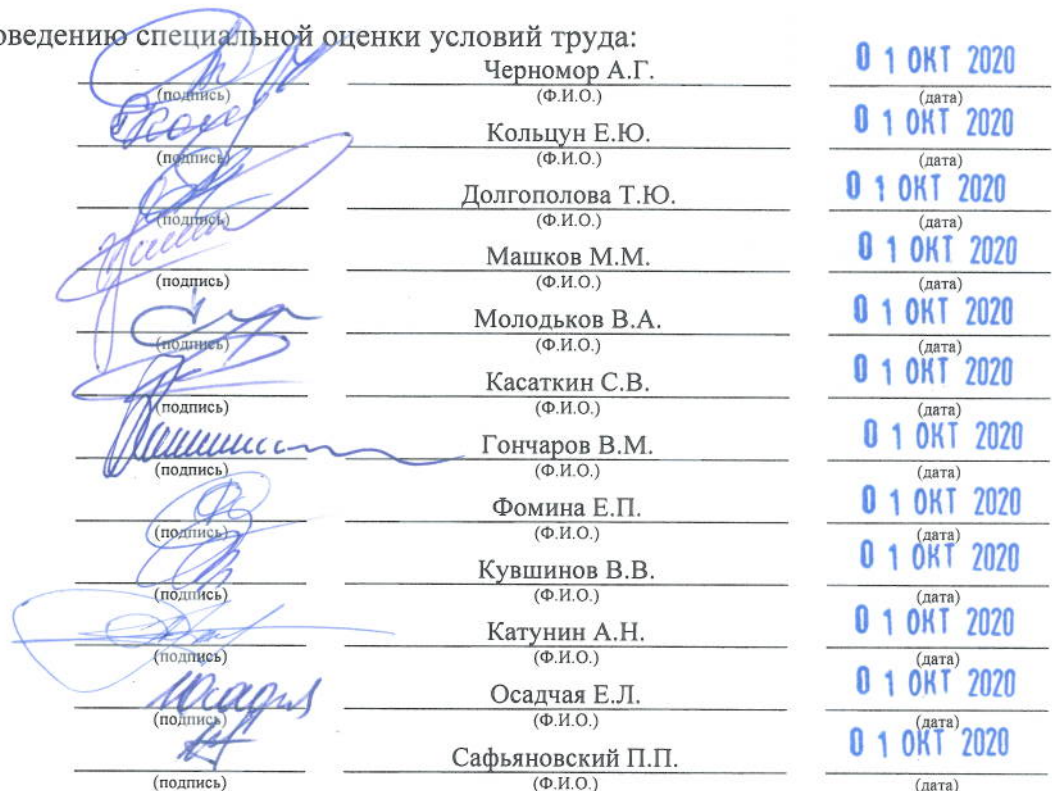 оведению специальной оценки условий труда:
Черномор А.Г. 0 1 ОКТ 2020
(подпись) (Ф.И.О.) (дата)
Кольцун Е.Ю. 0 1 ОКТ 2020
(подпись) (Ф.И.О.) (дата)
Долгополова Т.Ю. 0 1 ОКТ 2020
(подпись) (Ф.И.О.) (дата)
Машков М.М. 0 1 ОКТ 2020
(подпись) (Ф.И.О.) (дата)
Молодьков В.А. 0 1 ОКТ 2020
(подпись) (Ф.И.О.) (дата)
Касаткин С.В. 0 1 ОКТ 2020
(подпись) (Ф.И.О.) (дата)
Гончаров В.М. 0 1 ОКТ 2020
(подпись) (Ф.И.О.) (дата)
Фомина Е.П. 0 1 ОКТ 2020
(подпись) (Ф.И.О.) (дата)
Кувшинов В.В. 0 1 ОКТ 2020
(подпись) (Ф.И.О.) (дата)
Катунин А.Н. 0 1 ОКТ 2020
(подпись) (Ф.И.О.) (дата)
Осадчая Е.Л. 0 1 ОКТ 2020
(подпись) (Ф.И.О.) (дата)
Сафьяновский П.П. 0 1 ОКТ 2020
(подпись) (Ф.И.О.) (дата)